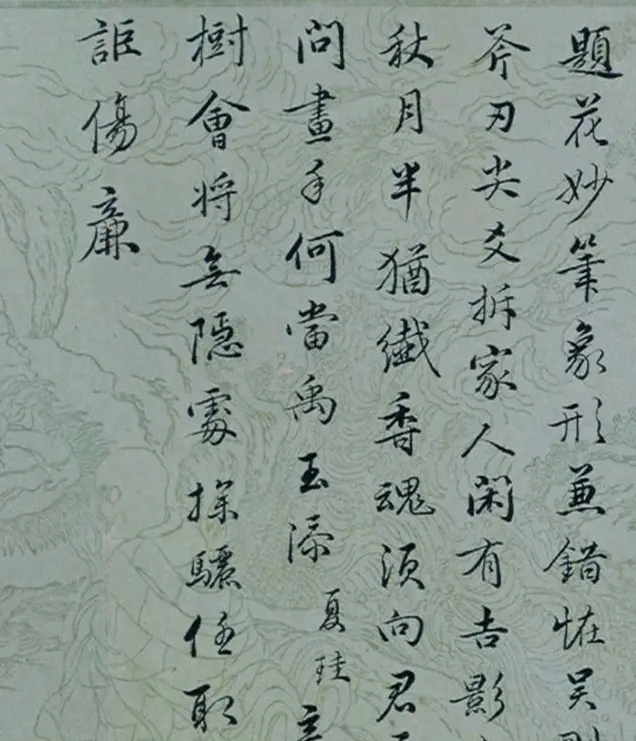 題花妙筆象形蒹錯恠吴剛
斧刃尖爻拆家人閑有吉影
秋月半猶纎香魂須向君
問畫手何當禹玉添 夏珪
樹會將無隱處探驪任取
詎傷廉